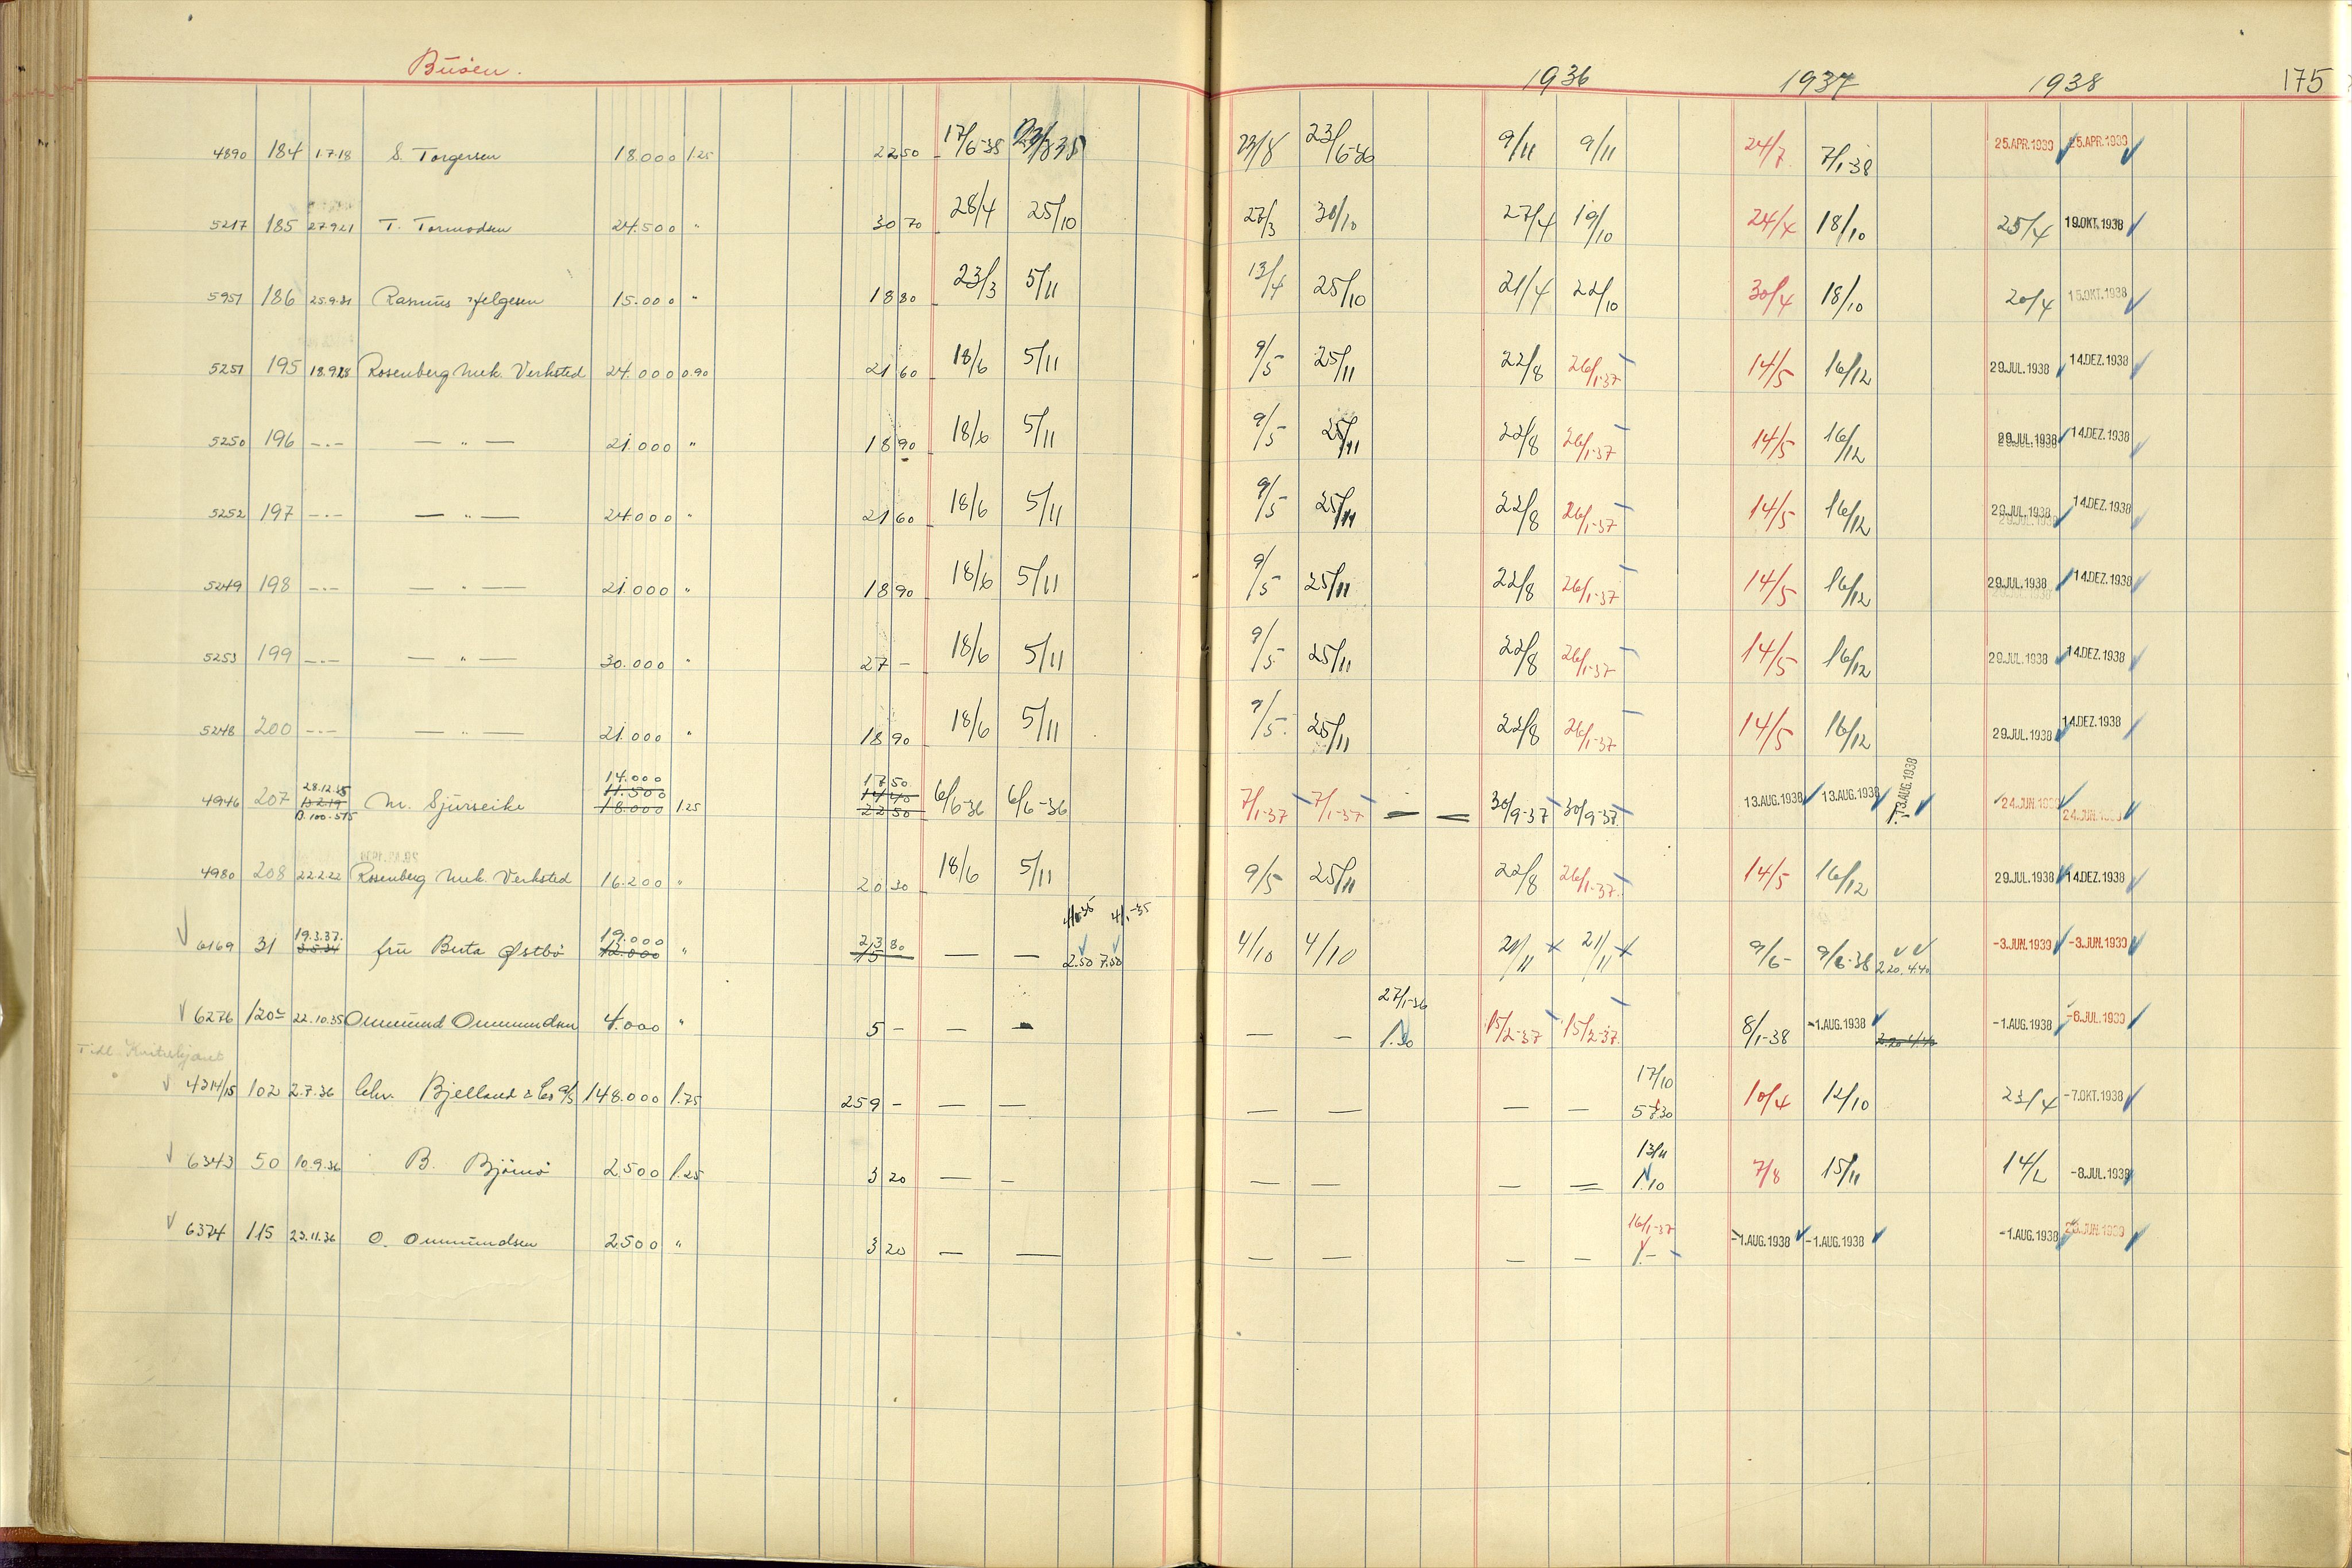 Buøen. 1936 1937 1938 175
4890 184 1.7.18 S. Torgersen 18.000 1.25 22 50 17/6-35 23/8 23/6-36 9/11 9/11 24/7 7/1-38 25.APR.1939 25.APR.1939
5217 185 27.9.21 T. Tormodsen 24.500 " 30 70 28/4 25/10 27/3 30/10 27/4 19/10 24/4 18/10 25/4 19.OKT.1938
5951 186 25.9.31 Rasmus Helgesen 15.000 " 18 80 23/3 5/11 13/4 25/10 21/4 22/10 30/4 18/10 20/4 15.OKT.1938
5251 195 18.9.28 Rosenberg Mek. Verksted 24.000 0.90 21 60 18/6 5/11 9/5 25/11 22/8 26/1-37 14/5 16/12 29.JUL.1938 14.DEZ.1938
5250 196 -.- — " — 21.000 " 18 90 18/6 5/11 9/5 25/11 22/8 26/1-37 14/5 16/12 29.JUL.1938 14.DEZ.1938
5252 197 -.- — " — 24.000 " 21 60 18/6 5/11 9/5 25/11 22/8 26/1-37 14/5 16/12 29.JUL.1938 14.DEZ.1938
5249 198 -.- — " — 21.000 " 18 90 18/6 5/11 9/5 25/11 22/8 26/1-37 14/5 16/12 29.JUL.1938 14.DEZ.1938
5253 199 -.- — " — 30.000 " 27 - 18/6 5/11 9/5 25/11 22/8 26/1-37 14/5 16/12 29.JUL.1938 14.DEZ.1938
5248 200 -.- — " — 21.000 " 18 90 18/6 5/11 9/5 25/11 22/8 26/1-37 14/5 16/12 29.JUL.1938 14.DEZ.1938
28.12.35 14.000 17 50
11.500
4946 207 M. Sjurseike 18.000 1.25 22 50 6/6-36 6/6-36 7/1-37 7/1-37 — — 30/9-37 30/9-37 13.AUG.1938 13.AUG.1938 13.AUG.1938 24.JUN.1939 24.JUN.1939
B.100-515
4980 208 22.2.22 Rosenberg Mek. Verksted 16.200 " 20 30 18/6 5/11 9/5 25/11 22/8 26/1-37 14/5 16/12 29.JUL.1938 14.DEZ.1938
19.3.37. 19.000 23 80 4/1-35
6169 31 3.5.34 fru Berta Østbö 12.000 " 15 — — 2.50 7.50 4/10 4/10 21/11 21/11 9/6- 9/6-38 2.20 4.40 -3.JUN.1939 -3.JUN.1939
27/1-36
6276 120 22.10.35 Ommund Ommundsen 4.000 " 5 - — — — — 1.30 15/2-37 15/2-37. 8/1-38 -1.AUG.1938 -1.AUG.1938 -6.JUL.1939
Tidl.
17/10
4314/15 102 2.7.36 Chr. Bjelland & Co A/S 148.000 1.75 259 - — — — — — — 10/4 12/10 23/4 -7.OKT.1938
13/11
6343 50 10.9.36 B. Björnö 2.500 1.25 3 20 — — — — — — 1.10 7/8 15/11 14/2 -8.JUL.1938
16/1-37
6374 115 23.11.36 O. Ommundsen 2500 " 3 20 — — — — — — 1.- -1.AUG.1938 -1.AUG.1938 -1.AUG.1938